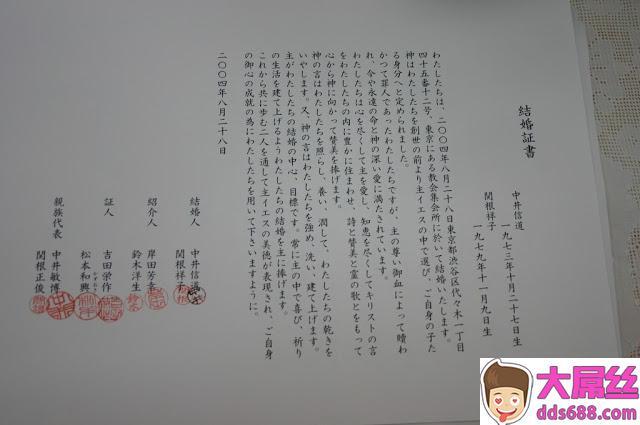 結婚証書
中井信道
一九七三年十月二十七日生
関根祥子
一九七九年十一月九日生
わたしたちは、二〇〇四年八月二十八日東京都渋谷区代々木一丁目
四十五番十二号、東京にある教会集会所に於いて結婚いたします。
神はわたしたちを創世の前より主イエスの中で選び、ご自身の子た
る身分へと定められました。
かつて罪人であったわたしたちですが、主の尊い御血によって贖わ
れ、今や永遠の命と神の深い愛に満たされています。
わたしたちは心を尽くして主を愛し、知恵を尽くしてキリストの言
をわたしたちの内に豊かに住まわせ、詩と賛美と霊の歌とをもって
心から神に向かって賛美を捧げます。
神の言はわたしたちを照らし、養い、潤して、わたしたちの乾きを
いやします。又、神の言はわたしたちを強め、洗い、建て上げます。
主がわたしたちの結婚の中心、目標です。常に主の中で喜び、祈り
の生活を建て上げるようわたしたちの結婚を主に捧げます。
これから共に歩む二人を通して主イエスの美徳が表現され、ご自身
の御心の成就の為にわたしたちを用いて下さいますように。
二〇〇四年八月二十八日
結婚人 中井信道
関根祥子
紹介人 岸田芳幸
鈴木洋生
証人 吉田栄作
松本和興
親族代表 中井敏博
関根正俊
大屌丝
dds688.com